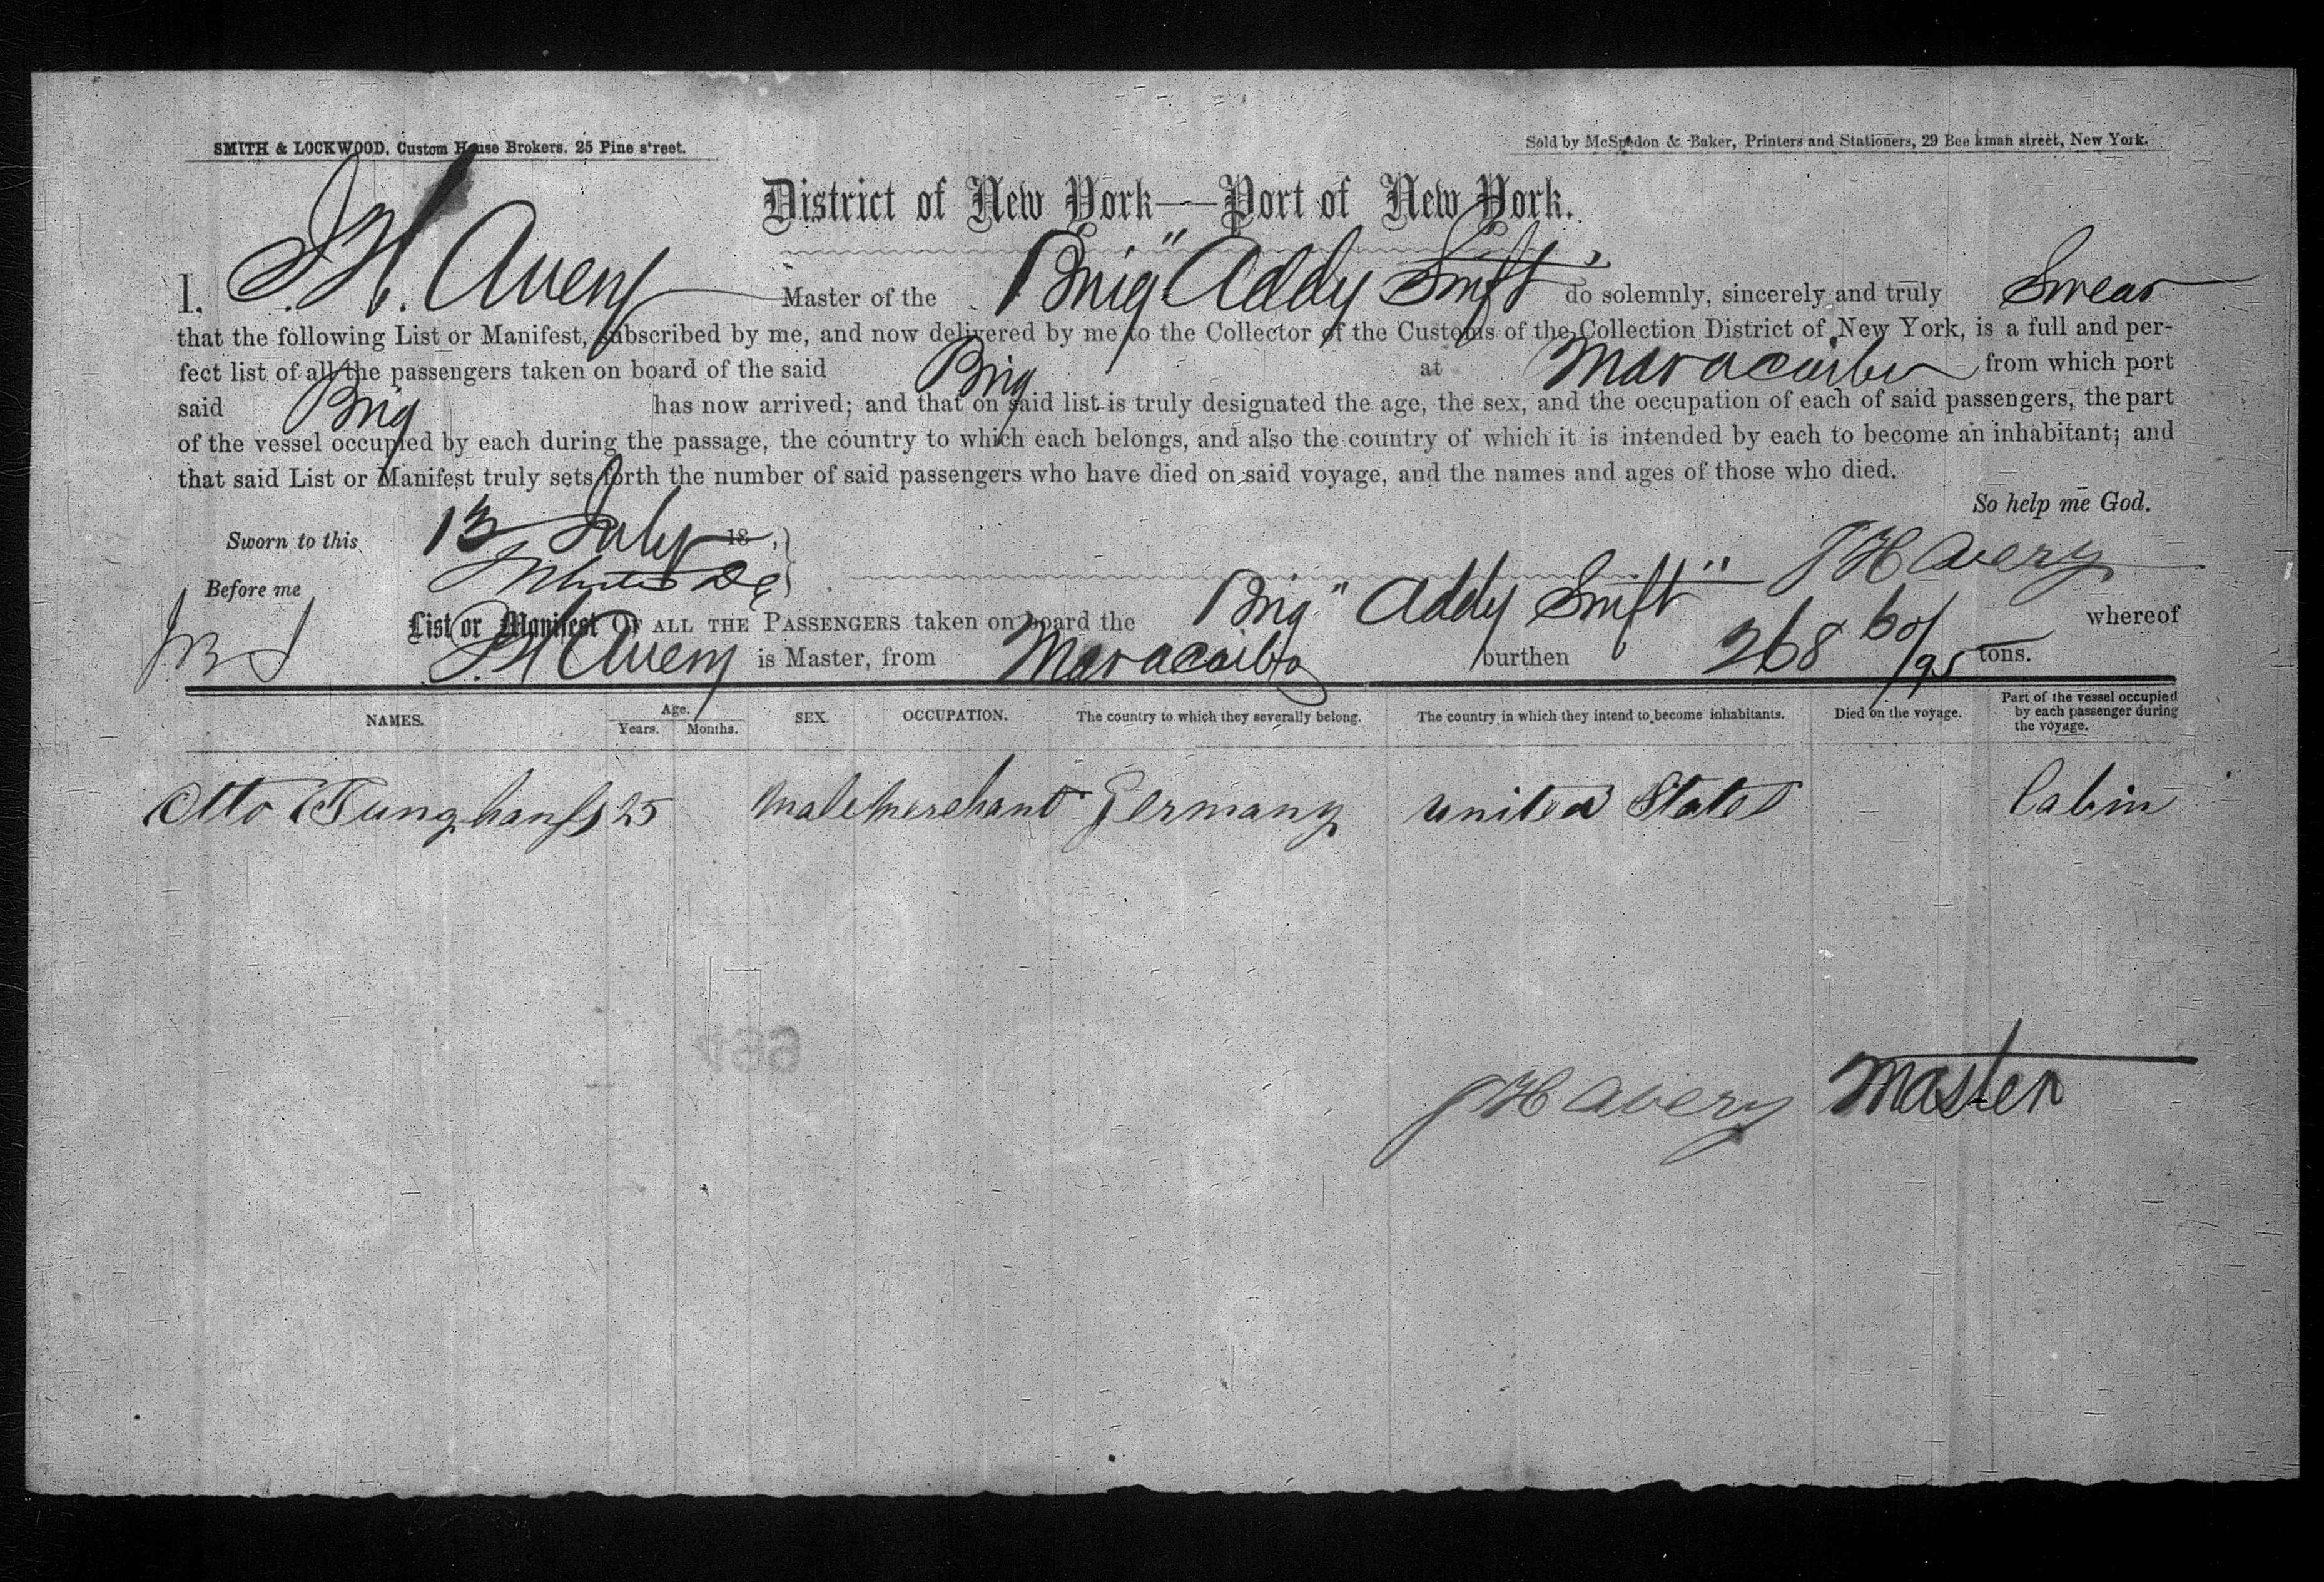 SMITH & LOCKWOOD, Custom House Brokers, 25 Pine street.
Sold by McSpedon & Baker, Printers and Stationers, 29 Beekman street, New York.
District of New York—Port of New York.
I, J. H. Avery Master of the Brig "Addy Swift" do solemnly, sincerely and truly Swear
that the following List or Manifest, subscribed by me, and now delivered by me to the Collector of the Customs of the Collection District of New York, is a full and per-
fect list of all the passengers taken on board of the said Brig at Maracaibo from which port
said Brig has now arrived; and that on said list is truly designated the age, the sex, and the occupation of each of said passengers, the part
of the vessel occupied by each during the passage, the country to which each belongs, and also the country of which it is intended by each to become an inhabitant; and
that said List or Manifest truly sets forth the number of said passengers who have died on said voyage, and the names and ages of those who died.
So help me God.
Sworn to this 13 July 18 ,
J H Avery
Before me
List or Manifest OF ALL THE PASSENGERS taken on board the Brig "Addy Swift" whereof
J. H. Avery is Master, from Maracaibo burthen 268 60/95 tons.
NAMES. Age. Years. Months. SEX. OCCUPATION. The country to which they severally belong. The country in which they intend to become inhabitants. Died on the voyage. Part of the vessel occupied by each passenger during the voyage.
Otto Junghanss 25 male merchant Germany United States Cabin
J H Avery Master